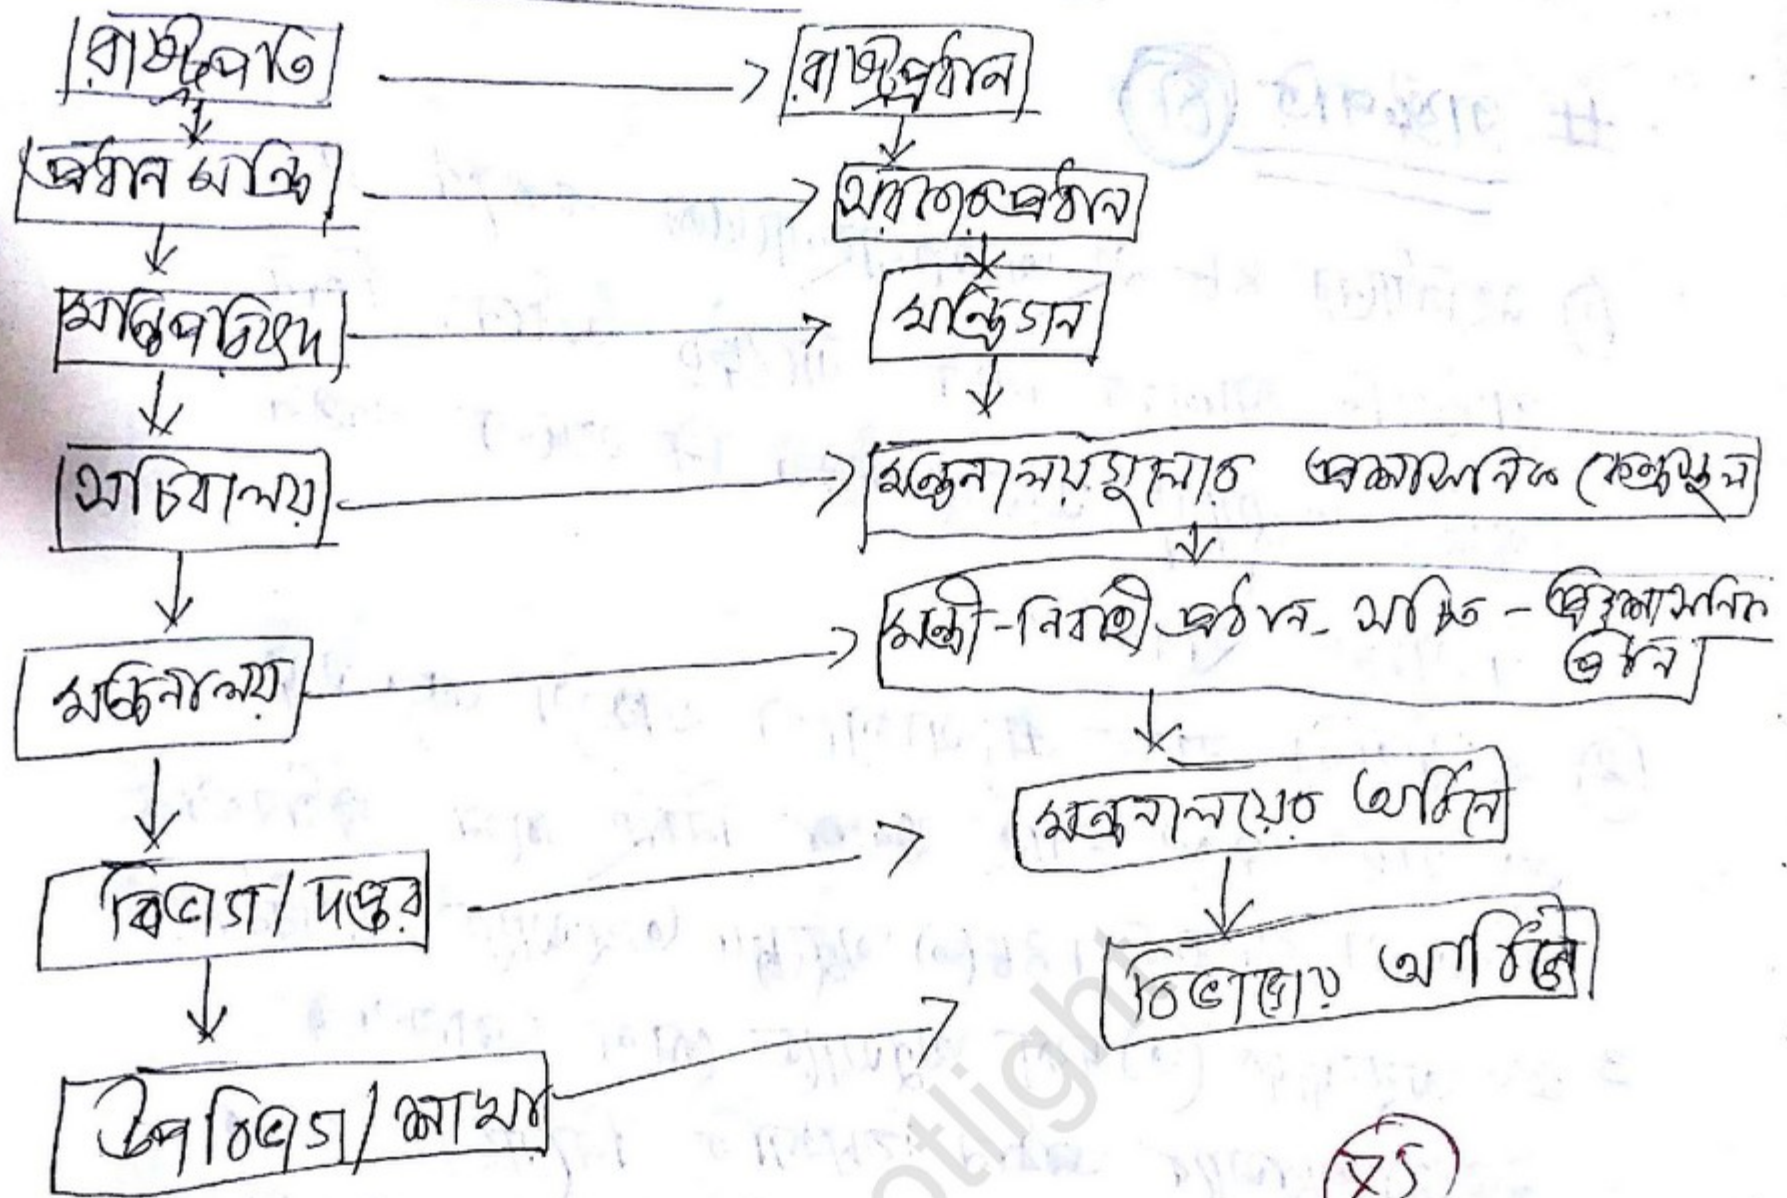 রাষ্ট্রপতি রাষ্ট্রপ্রধান
প্রধান মন্ত্রি সরকারপ্রধান
মন্ত্রিপরিষদ মন্ত্রিগন
সচিবালয় মন্ত্রনালয়গুলোর প্রশাসনিক কেন্দ্রস্থল
মন্ত্রনালয় মন্ত্রী-নির্বাহী প্রধান- সচিব - প্রশাসনিক
প্রধান
বিভাগ/দপ্তর মন্ত্রনালয়ের অধিনে
উপবিভাগ/শাখা বিভাগের অধিনে
otlight